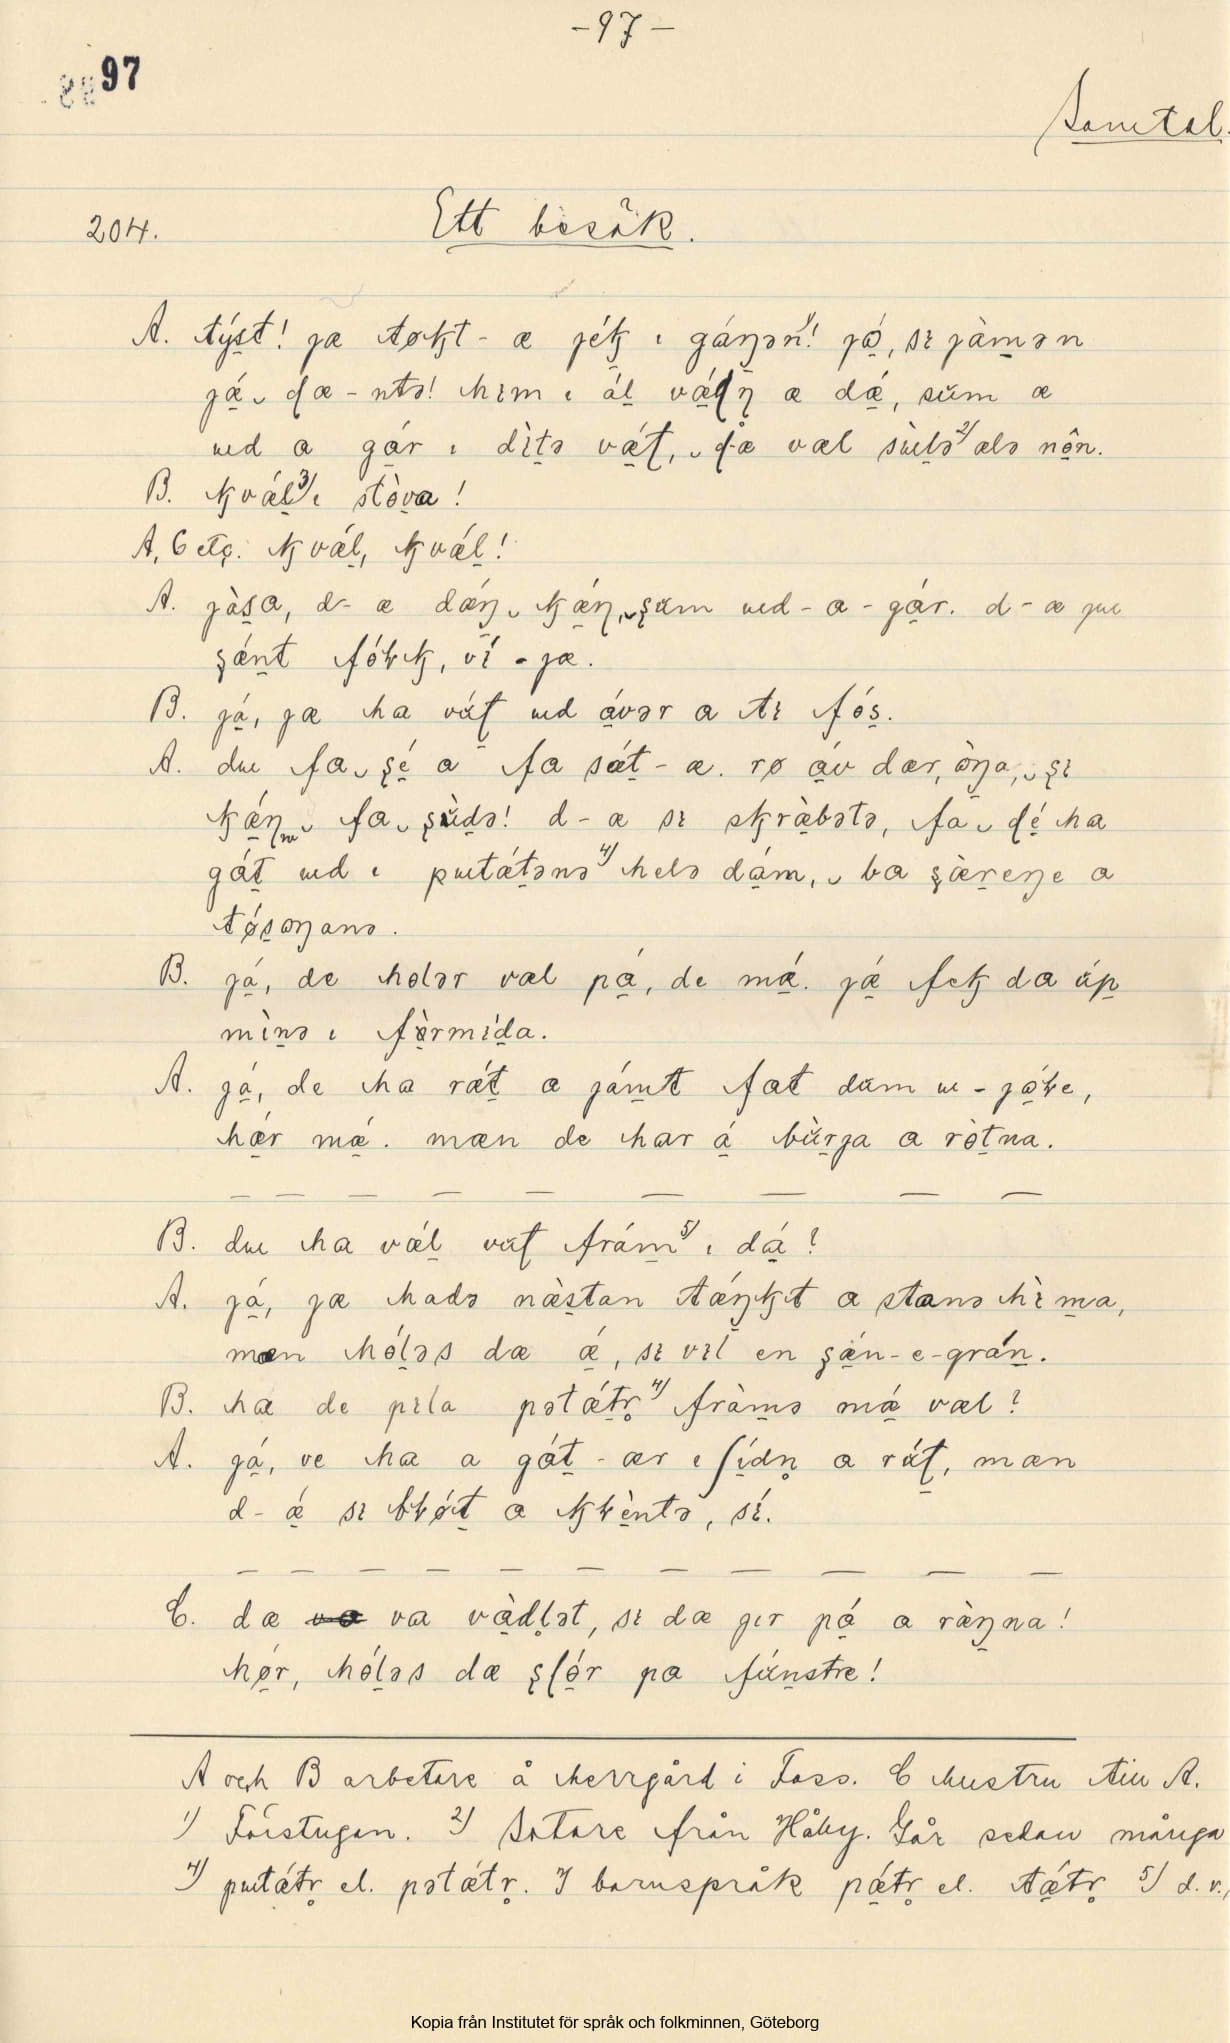 -97-
97
Samtal.
204. Ett besök.
A. týst! jæ tøkt-æ jék ı gáŋən¹⁾! jǿ, sı jàmən
jǽ, dæ-ntə! hım ı ál vǽɖŋ æ dǽ, sum æ
ud a gár ı dìtə vǽʈ, dæ væl sùtə²⁾ ælə nôn.
B. kvǽl³⁾ ı stòva!
A, C etc. kvǽl, kvǽl!
A. jàsa, d-æ dǽŋ kǽŋ, sum ud-a-gár. d-æ ju
sǽnt fólk, ví-jæ.
B. já, jæ ha váʈ ud ávər a tı fós.
A. du fa sé a fa sǽt-æ. rø áv dær, òŋa, sı
kǽŋ fa sùdə! d-æ sı skràbətə, fa dé ha
gát ud ı putǽtənə⁴⁾ helə dám, ba sæ̀reŋe a
tǿsoŋanə.
B. já, de holər væl pá, de mǽ. jǽ fek da úp
mìnə ı fòrmída.
A. já, de ha rǽt a jámt fat dum u-jǿle,
hǽr mǽ. mæn de har á bùrja a ròtna.
— — — — — — — — —
B. du ha vǽl vaʈ frám⁵⁾ ı dá?
A. já, jæ hadə næ̀stan tǽŋkt a stanə hìma,
mæn hóləs dæ ǽ, sı vıl en sǽn-e-grán.
B. ha de pıla pətǽtr⁴⁾ fràmə mǽ væl?
A. já, ve ha a gát-ær ı sídn a ráʈ, mæn
d-ǽ sı blǿt a klèntə, sí.
— — — — — — — — —
C. dæ va vàdlət, sı dæ gır pá a ræ̀ŋna!
hǿr, hóləs dæ slór pa fúnstre!
A och B arbetare å herrgård i Foss. C hustru till A.
1) Förstugan. 2) Sotare från Håby. Går sedan många
4) putǽtr el. pətǽtr. I barnspråk pǽtr el. tǽtr 5) d. v.
Kopia från Institutet för språk och folkminnen, Göteborg